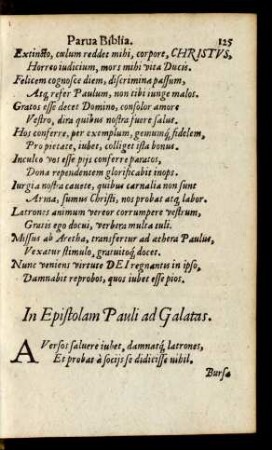 Parua Biblia. 125
Extincto, cœlum reddet mihi, corpore, CHRISTVS,
Horreo iudicium, mors mihi vita Ducis.
Felicem cognosce diem, discrimina passum,
Atq; refer Paulum, non tibi iunge malos.
Gratos esse decet Domino, consolor amore
Vestro, dira quibus nostra fuere salus.
Hos conferre, per exemplum, gemumq́; fidelem,
Pro pietate, iubet, colliget ista bonus.
Inculco vos esse pijs conferre paratos,
Dona rependentem glorificabit inops.
Iurgia nostra cauete, quibus carnalia non sunt
Arma, sumus Christi, nos probat atq; labor.
Latrones animum vereor corrumpere vestrum,
Gratis ego docui, verbera multa tuli.
Missus ab Aretha, transfertur ad æthera Paulus,
Vexatur stimulo, gratuitoq́; docet.
Nunc veniens virtute DEI regnantis in ipso,
Damnabit reprobos, quos iubet esse pios.
In Epistolam Pauli ad Galatas.
AVersos saluere iubet, damnatq́; latrones,
Et probat à socijs se didicisse nihil.
Bursa